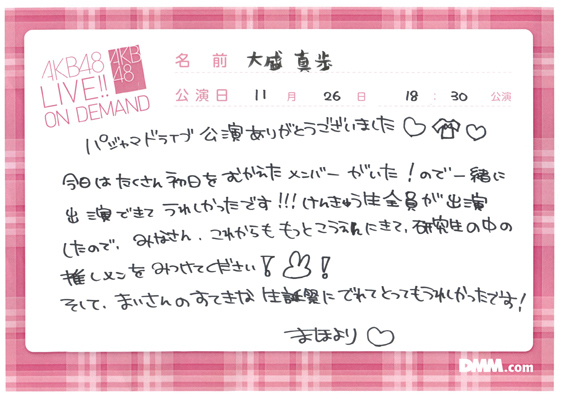 AKB48
LIVE!!
ON DEMAND
AKB48
名 前 大盛 真歩
公演日 11 月 26 日 18 : 30 公演
パジャマドライブ 公演ありがとうございました♡ ♡
今日は たくさん 初日を むかえた メンバー がいた!ので 一緒に
出演できて うれしかったです!!! けんきゅう生全員が出演
したので、みなさん、これからも もっとこうえんにきて、研究生の中の
推しメンを みつけてください! !
そして、まいさんの すてきな 生誕祭に でれて とってもうれしかったです!
まほより ♡
DMM.com